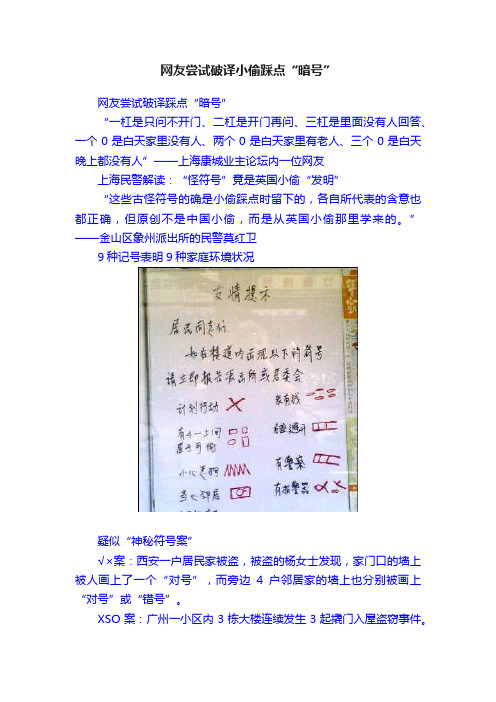 网友尝试破译小偷踩点“暗号”
网友尝试破译踩点“暗号”
“一杠是只问不开门、二杠是开门再问、三杠是里面没有人回答、
一个0是白天家里没有人、两个0是白天家里有老人、三个0是白天
晚上都没有人”——上海康城业主论坛内一位网友
上海民警解读：“怪符号”竟是英国小偷“发明”
“这些古怪符号的确是小偷踩点时留下的，各自所代表的含意也
都正确，但原创不是中国小偷，而是从英国小偷那里学来的。”
——金山区象州派出所的民警莫红卫
9种记号表明9种家庭环境状况
友情提示
居民同志们
如在楼道内出现以下的符号
请立即报告派出所或居委会
计划行动
家有钱
有4—5间
屋子可偷
小心恶狗
有警察
当心邻居
有报警器
疑似“神秘符号案”
√×案：西安一户居民家被盗，被盗的杨女士发现，家门口的墙上
被人画上了一个“对号”，而旁边4户邻居家的墙上也分别被画上
“对号”或“错号”。
XSO案：广州一小区内3栋大楼连续发生3起撬门入屋盗窃事件。